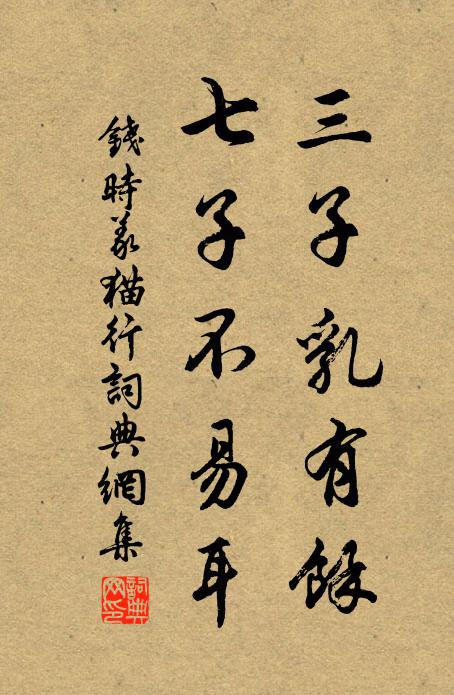 三子乳有餘
七子不易耳
錢時義猫行詞典網集
詞典
网印